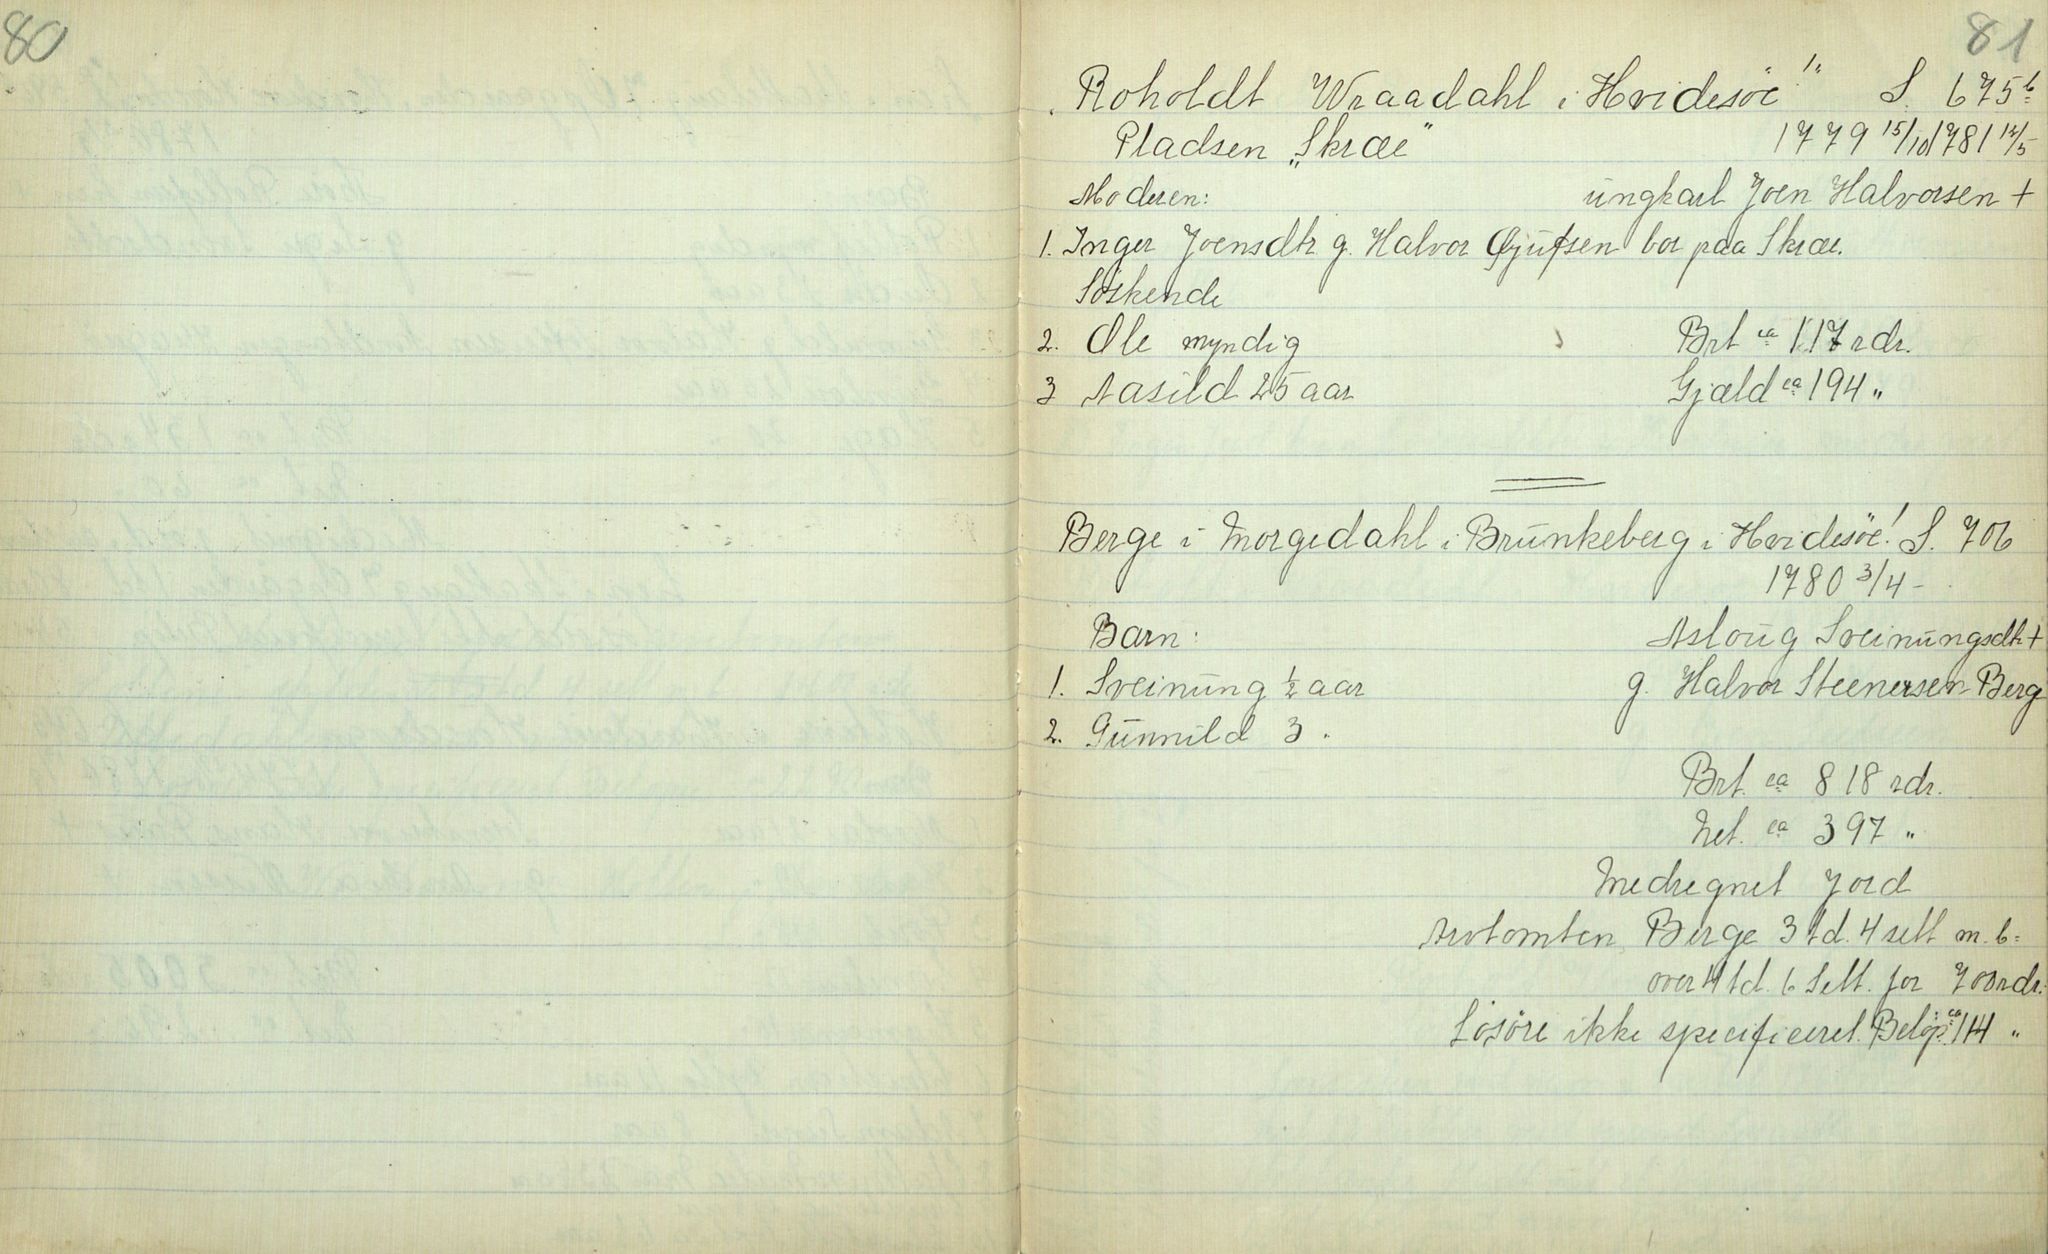 80
81
Roholdt Wraadahl i Hvidesöe!" S. 675b
Pladsen „Skræe" 1779 15/10 1781 12/5
Moderen: ungkarl Joen Halvorsen +
1. Inger Joensdtr g. Halvor Gjufsen bor paa Skræe.
Söskende
2. Ole myndig Brt ca 117 rdr.
3 Aasild 25 aar Gjæld ca 194 "
Berge i Morgedahl i Brunkeberg i Hvidesöe! S. 706
1780 3/4 -
Barn: Asloug Sveinungsdtr +
1. Sveinung ½ aar g. Halvor Steenersen Berg
2. Gunnild 3 .
Brt. ca 818 rdr.
Net. ca 397 "
Medregnet Jord
Arvtomten Berge 3 td. 4 sett m. b=
over 4 td. 6 Sett. for 700 rdr.
Lösöre ikke specificeret. Belöp: ca 114 "